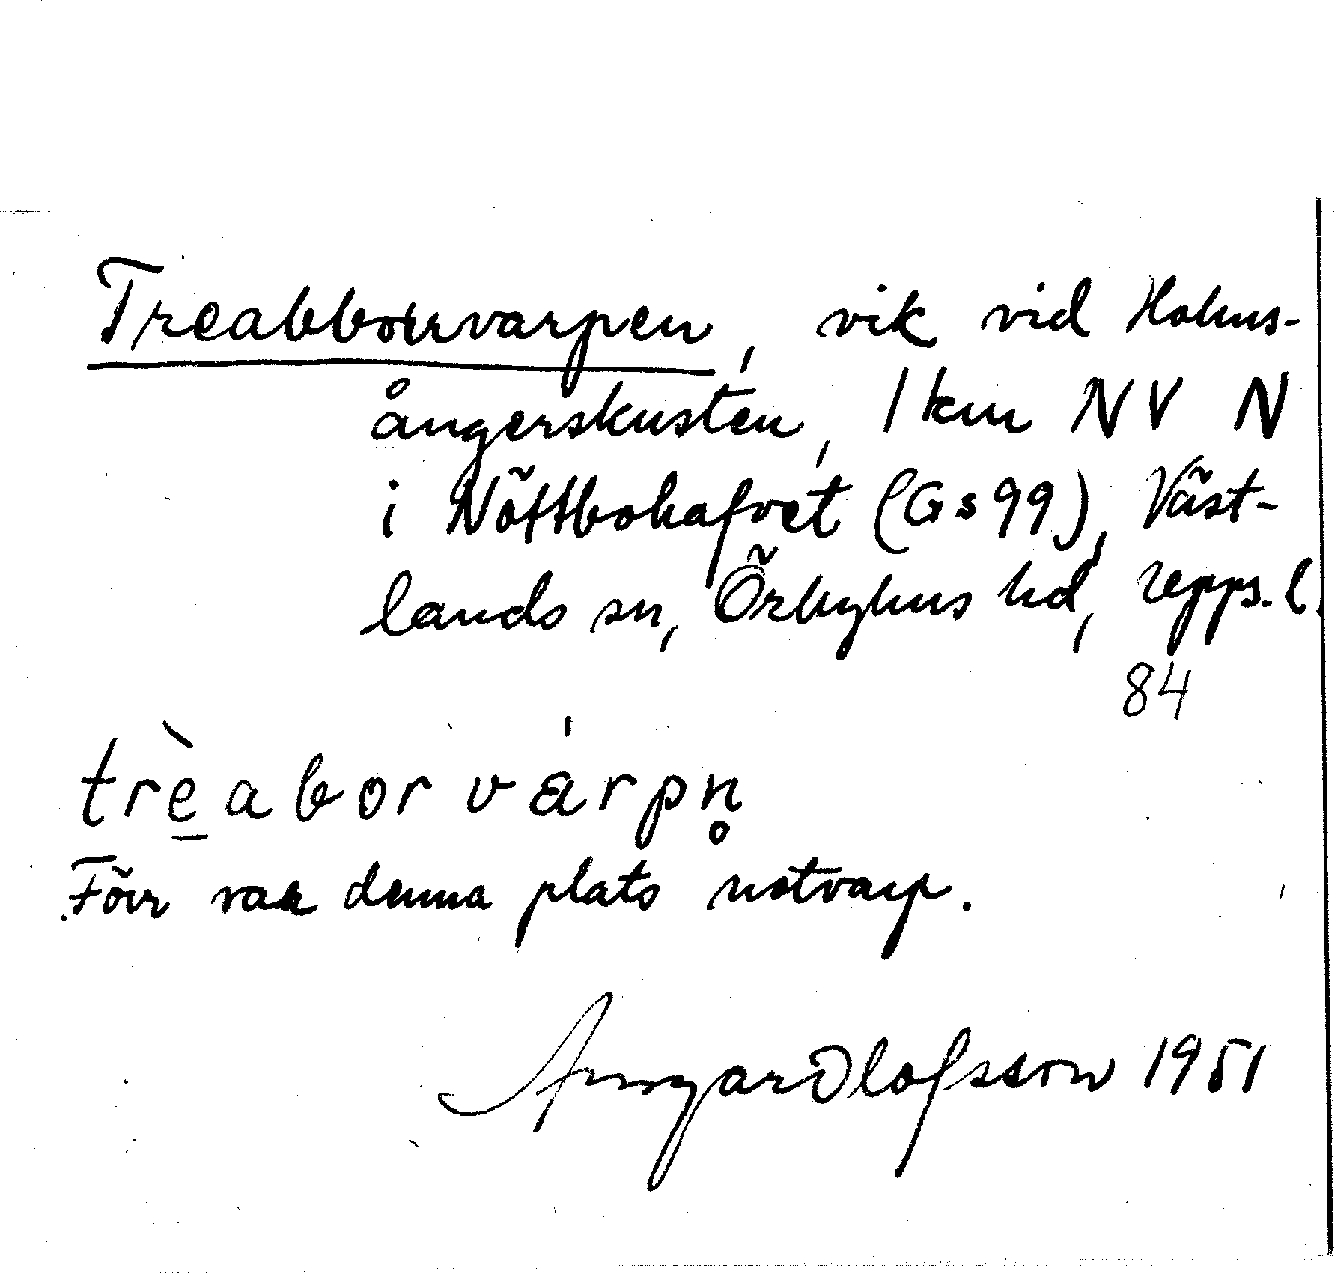 Treabborrvarpen, vik vid Holms-
ångerskusten, 1 km NV N
i Nöttbohafvet (Gs 99), Väst-
lands sn, Örbyhus hd, Upps. l.
84
trèabor várpn̥
Förr var denna plats notvarp.
Olofsson 1951